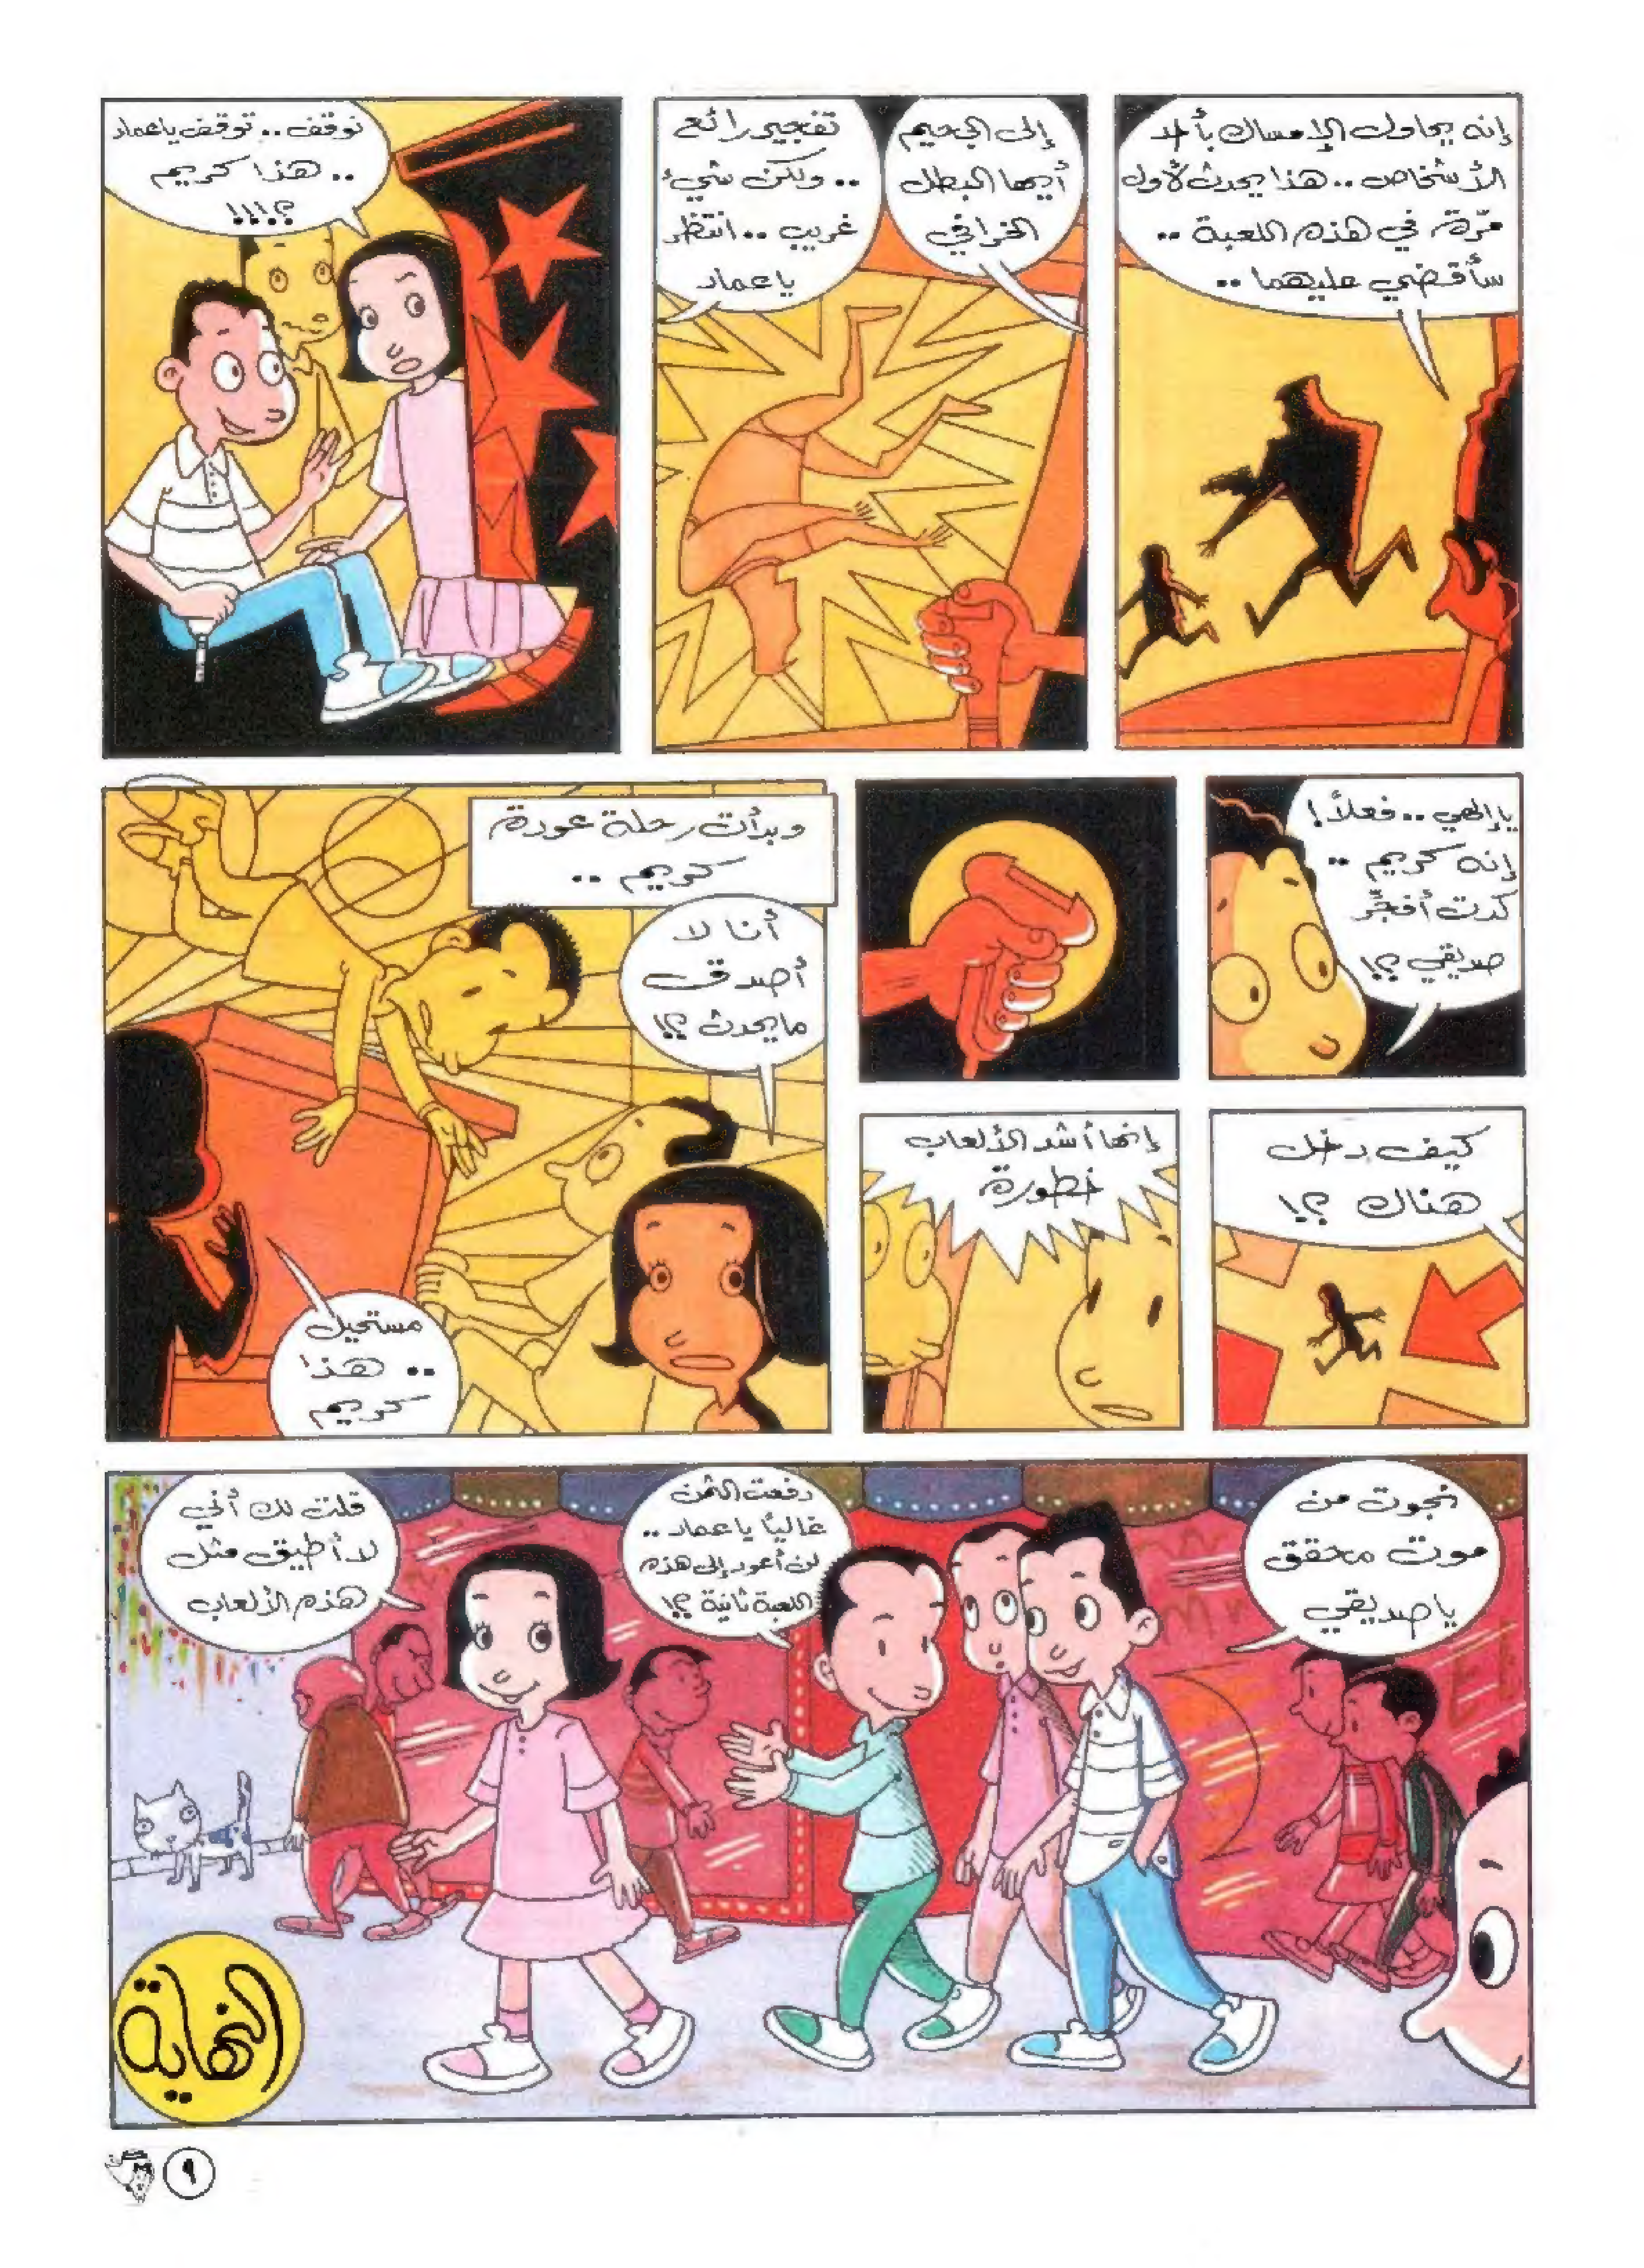 إنه يحاول الإمساك بأحد
الأشخاص.. هذا يحدث لأول
مرّة في هذه اللعبة ..
سأقضي عليهما ..
إلى الجحيم
أيها البطل
الخرافي
تفجير رائع
.. ولكن شيء
غريب .. انتظر
يا عماد
توقف .. توقف يا عماد
.. هذا كريم
؟!!!
يا إلهي .. فعلاً!
إنه كريم ..
كدت أفجِّر
صديقي ؟!
كيف دخل
هناك ؟!
إنها أشد الألعاب
خطورة
وبدأت رحلة عودة
كريم ..
أنا لا
أصدق
ما يحدث ؟!
مستحيل
.. هذا
كريم
نجوت من
موت محقق
يا صديقي
دفعت الثمن
غالياً يا عماد ..
لن أعود إلى هذه
اللعبة ثانية ؟!
قلت لك أني
لا أطيق مثل
هذه الألعاب
النهاية
٩